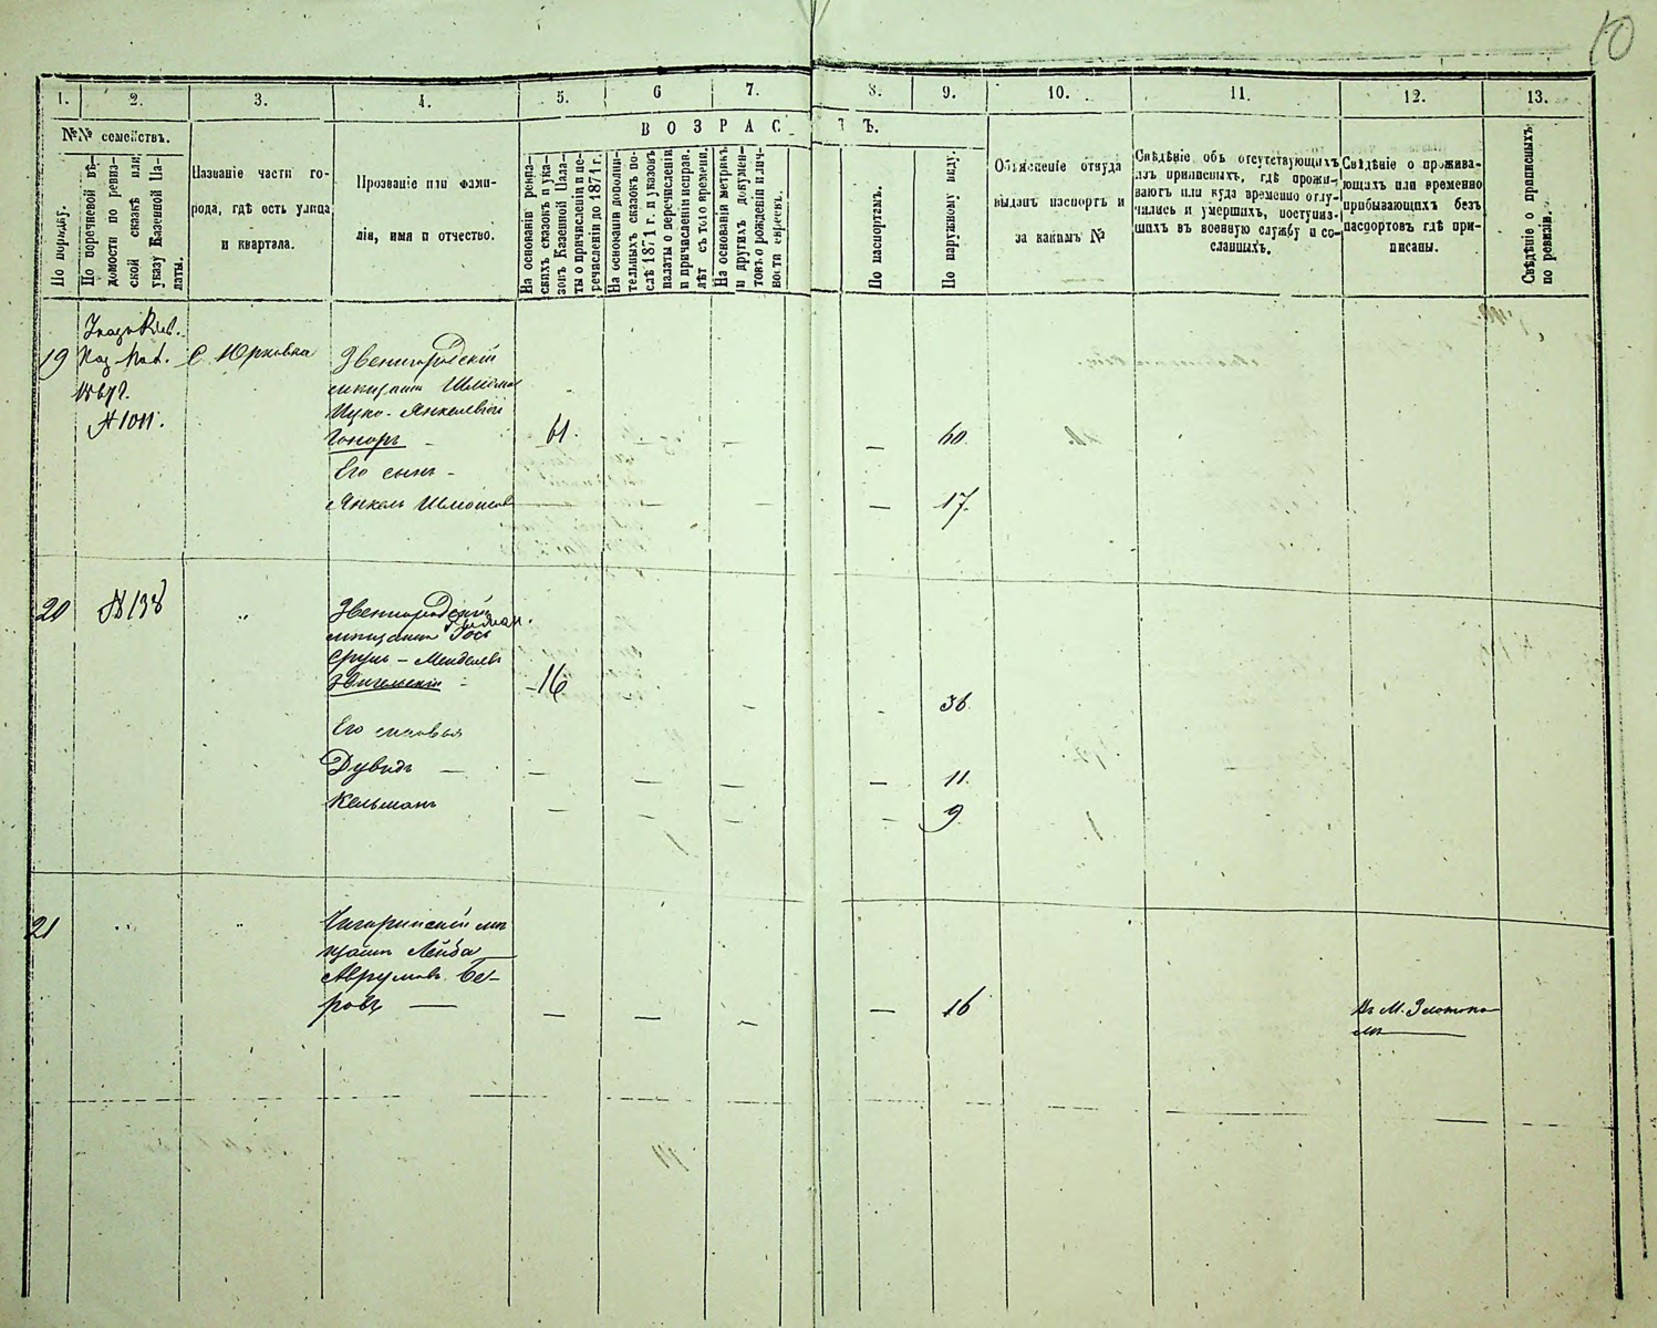 10
1. 2. 3. 4. 5. 6 7. 8. 9. 10. 11. 12. 13.
№№ семействъ.
По порядку.
По поречневой вѣ-
домости по ревиз-
ской сказкѣ или
указу Казенной Па-
латы.
Названіе части го-
рода, гдѣ есть улица
и квартала.
Прозваніе или фами-
лія, имя и отчество.
ВОЗРАСТЪ.
На основаніи ревиз-
скихъ сказокъ и ука-
зовъ Казенной Пала-
ты о причисленіи и пе-
речисленіи до 1871 г.
На основаніи дополни-
тельныхъ сказокъ по-
слѣ 1871 г. и указовъ
палаты о перечисленіи
и причисленіи исправ.
лѣт съ того времени.
На основаніи метрикъ
и другихъ докумен-
товъ о рожденіи и лич-
ности евреевъ.
По паспортамъ.
По наружному виду.
Объясненіе откуда
выданъ паспортъ и
за какимъ №
Свѣдѣніе объ отсутствующихъ
изъ приписныхъ, гдѣ прожи-
ваютъ или куда временно отлу-
чились и умершихъ, поступив-
шихъ въ военную службу и со-
сланныхъ.
Свѣдѣніе о прожива-
ющихъ или временно
прибывающихъ безъ
паспортовъ гдѣ при-
писаны.
Свѣдѣніе о приписныхъ
по ревизіи.
19
Каз. Пал.
№ 1011.
С. Юрковка
Звенигородскій
мѣщанинъ Шлiома
Ицко-Янкелевичъ
Гоноръ - 61. — — — 60.
Его сынъ -
Янкель Шліомовъ — — — — 17.
20 № 138 "
Звенигородскій
мѣщанинъ
Сруль - Менделевъ
- 16 — — 36
Его сыновья
Дувидъ — — — — — 11.
Кельманъ — — — — 9
21 " "
Чигиринскій мѣ
щанинъ Лейба
Аврумовъ Бе-
ровъ — — — — — 16
Въ М. Златопо
лѣ